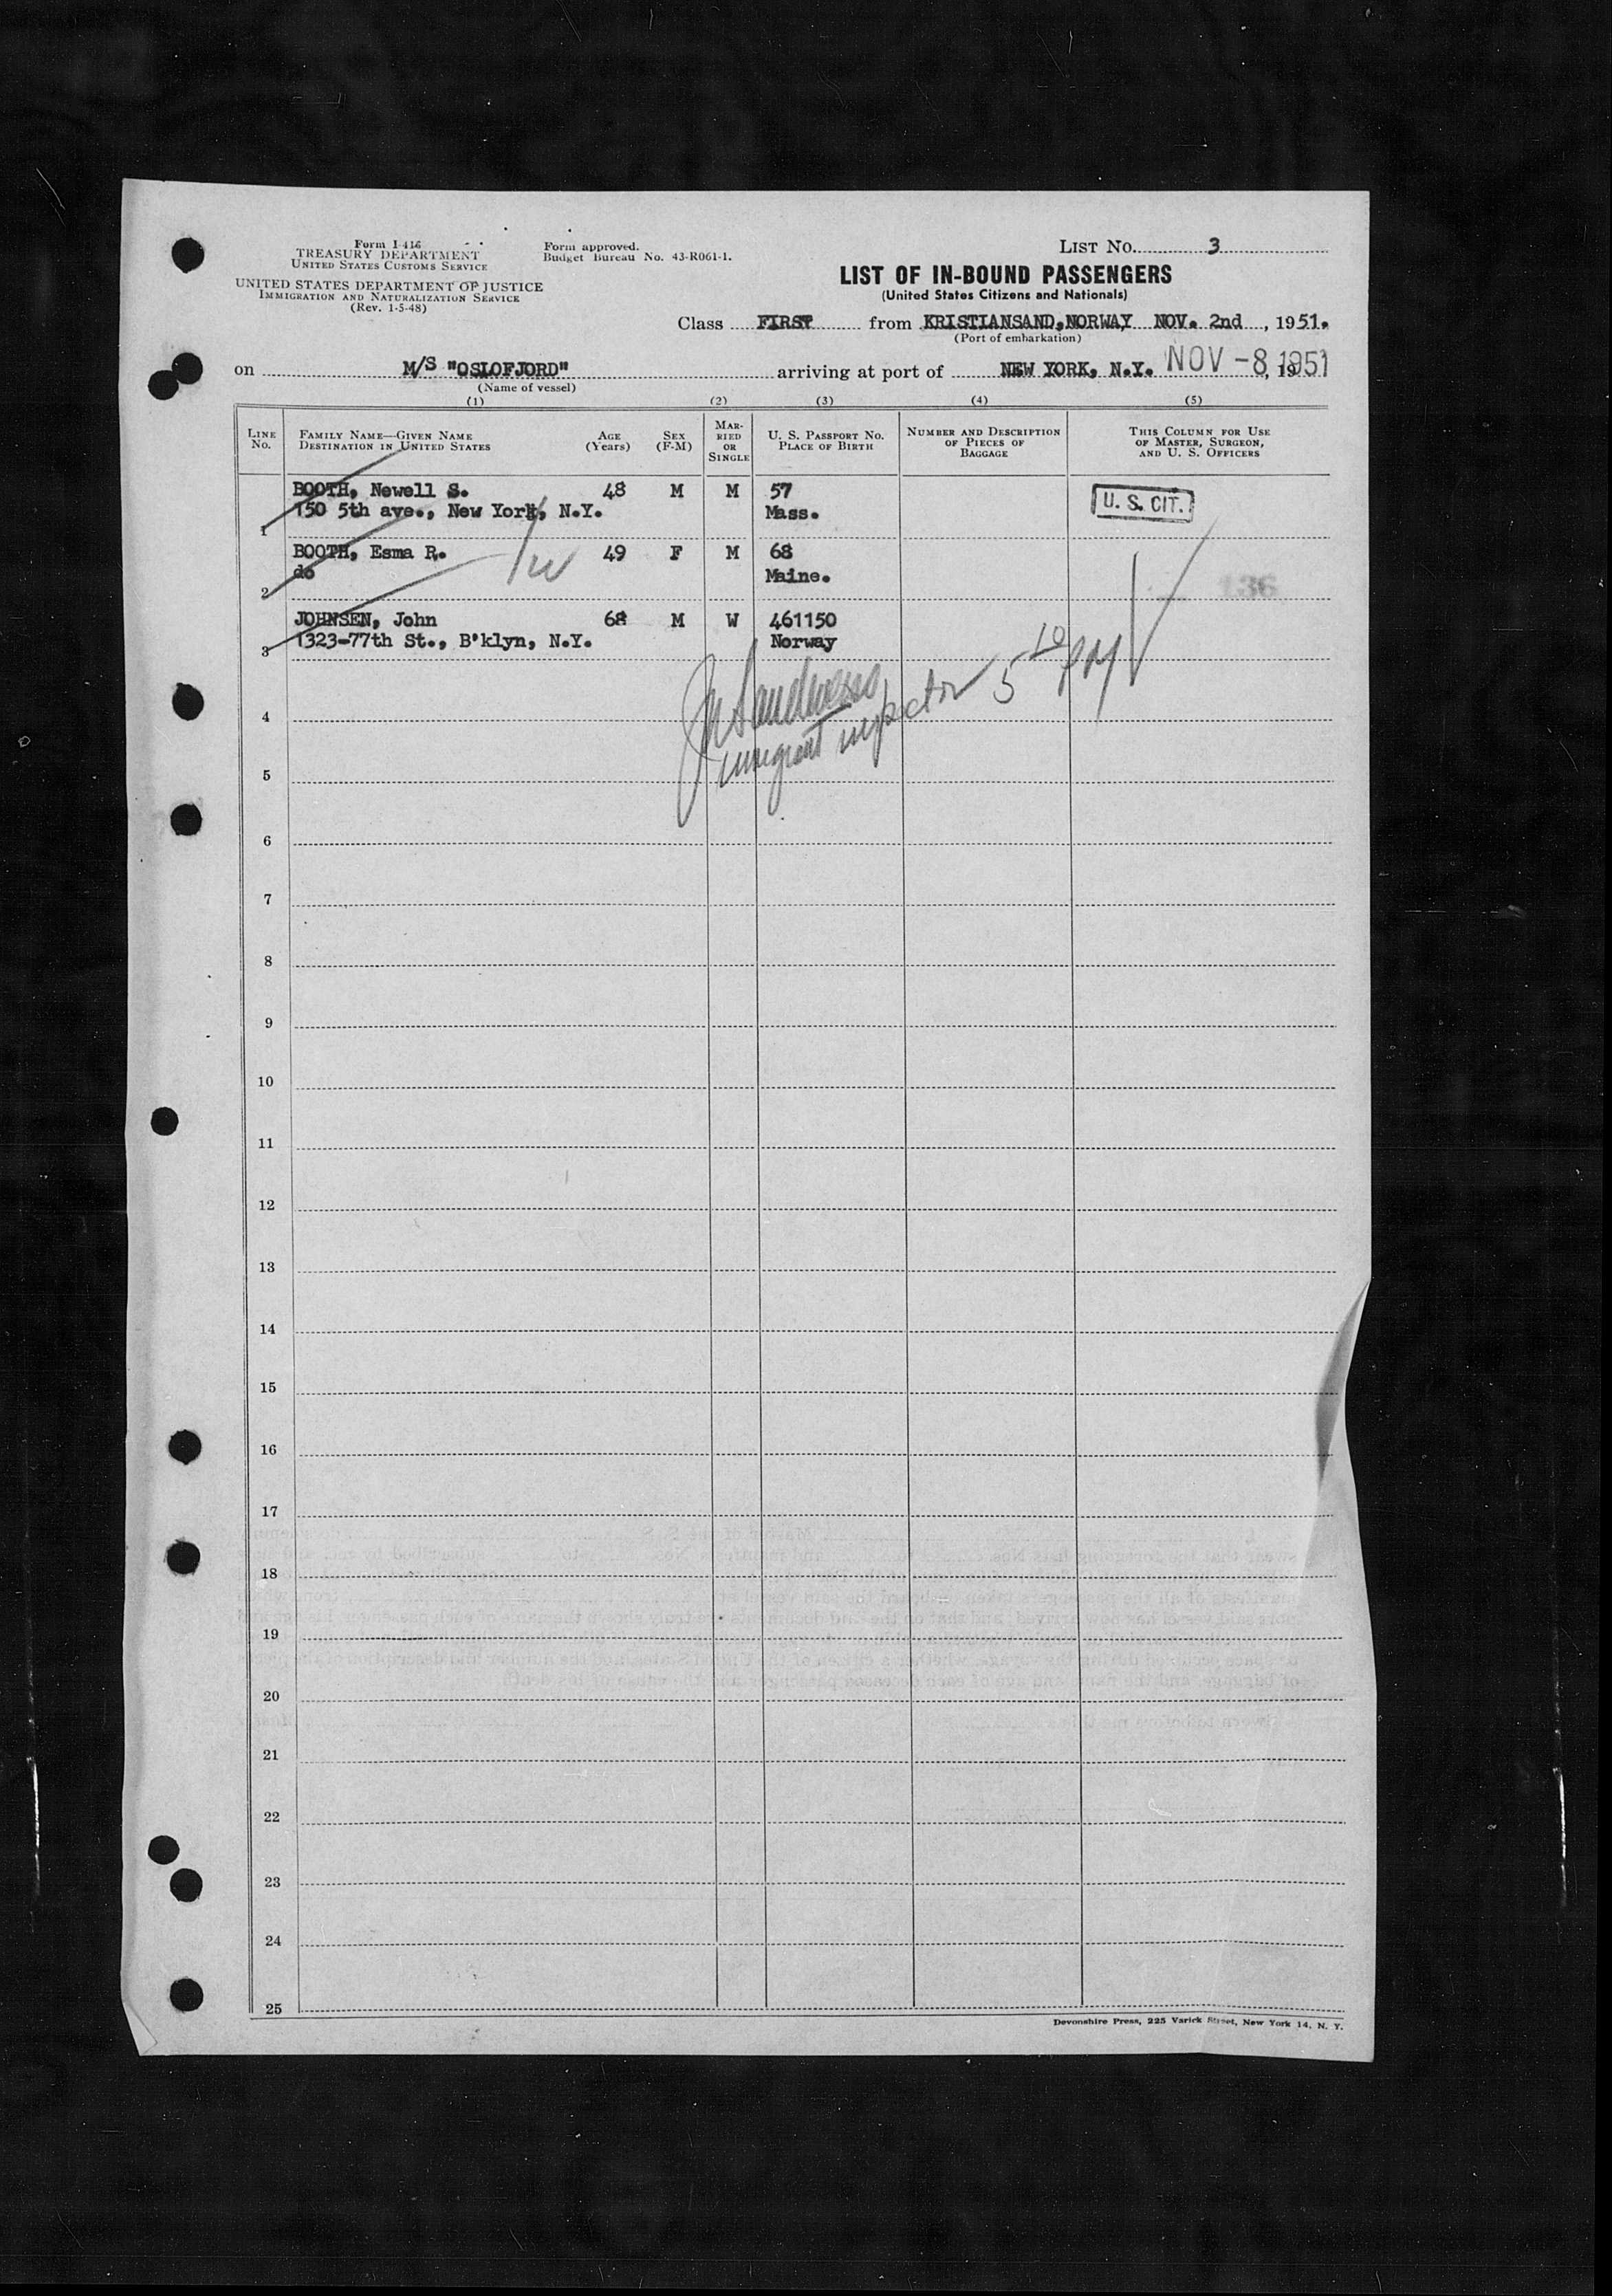 Form I-416
TREASURY DEPARTMENT
UNITED STATES CUSTOMS SERVICE
UNITED STATES DEPARTMENT OF JUSTICE
IMMIGRATION AND NATURALIZATION SERVICE
(Rev. 1-5-48)
Form approved.
Budget Bureau No. 43-R061-1.
LIST No. 3
LIST OF IN-BOUND PASSENGERS
(United States Citizens and Nationals)
Class FIRST from KRISTIANSAND, NORWAY NOV. 2nd, 1951.
(Port of embarkation)
on M/S "OSLOFJORD" arriving at port of NEW YORK, N.Y. NOV -8 1951, 19
(Name of vessel)
(1) (2) (3) (4) (5)
LINE No. FAMILY NAME—GIVEN NAME DESTINATION IN UNITED STATES AGE (Years) SEX (F-M) MARRIED OR SINGLE U. S. PASSPORT No. PLACE OF BIRTH NUMBER AND DESCRIPTION OF PIECES OF BAGGAGE THIS COLUMN FOR USE OF MASTER, SURGEON, AND U. S. OFFICERS
BOOTH, Newell S. 48 M M 57 U. S. CIT.
1 150 5th ave., New York, N.Y. Mass.
BOOTH, Esma R. 49 F M 68
2 do Maine. 136
JOHNSEN, John 68 M W 461150
3 1323-77th St., B'klyn, N.Y. Norway
immigrant inspector 5 10 PM
4
5
6
7
8
9
10
11
12
13
14
15
16
17
18
19
20
21
22
23
24
25
Devonshire Press, 225 Varick Street, New York 14, N. Y.